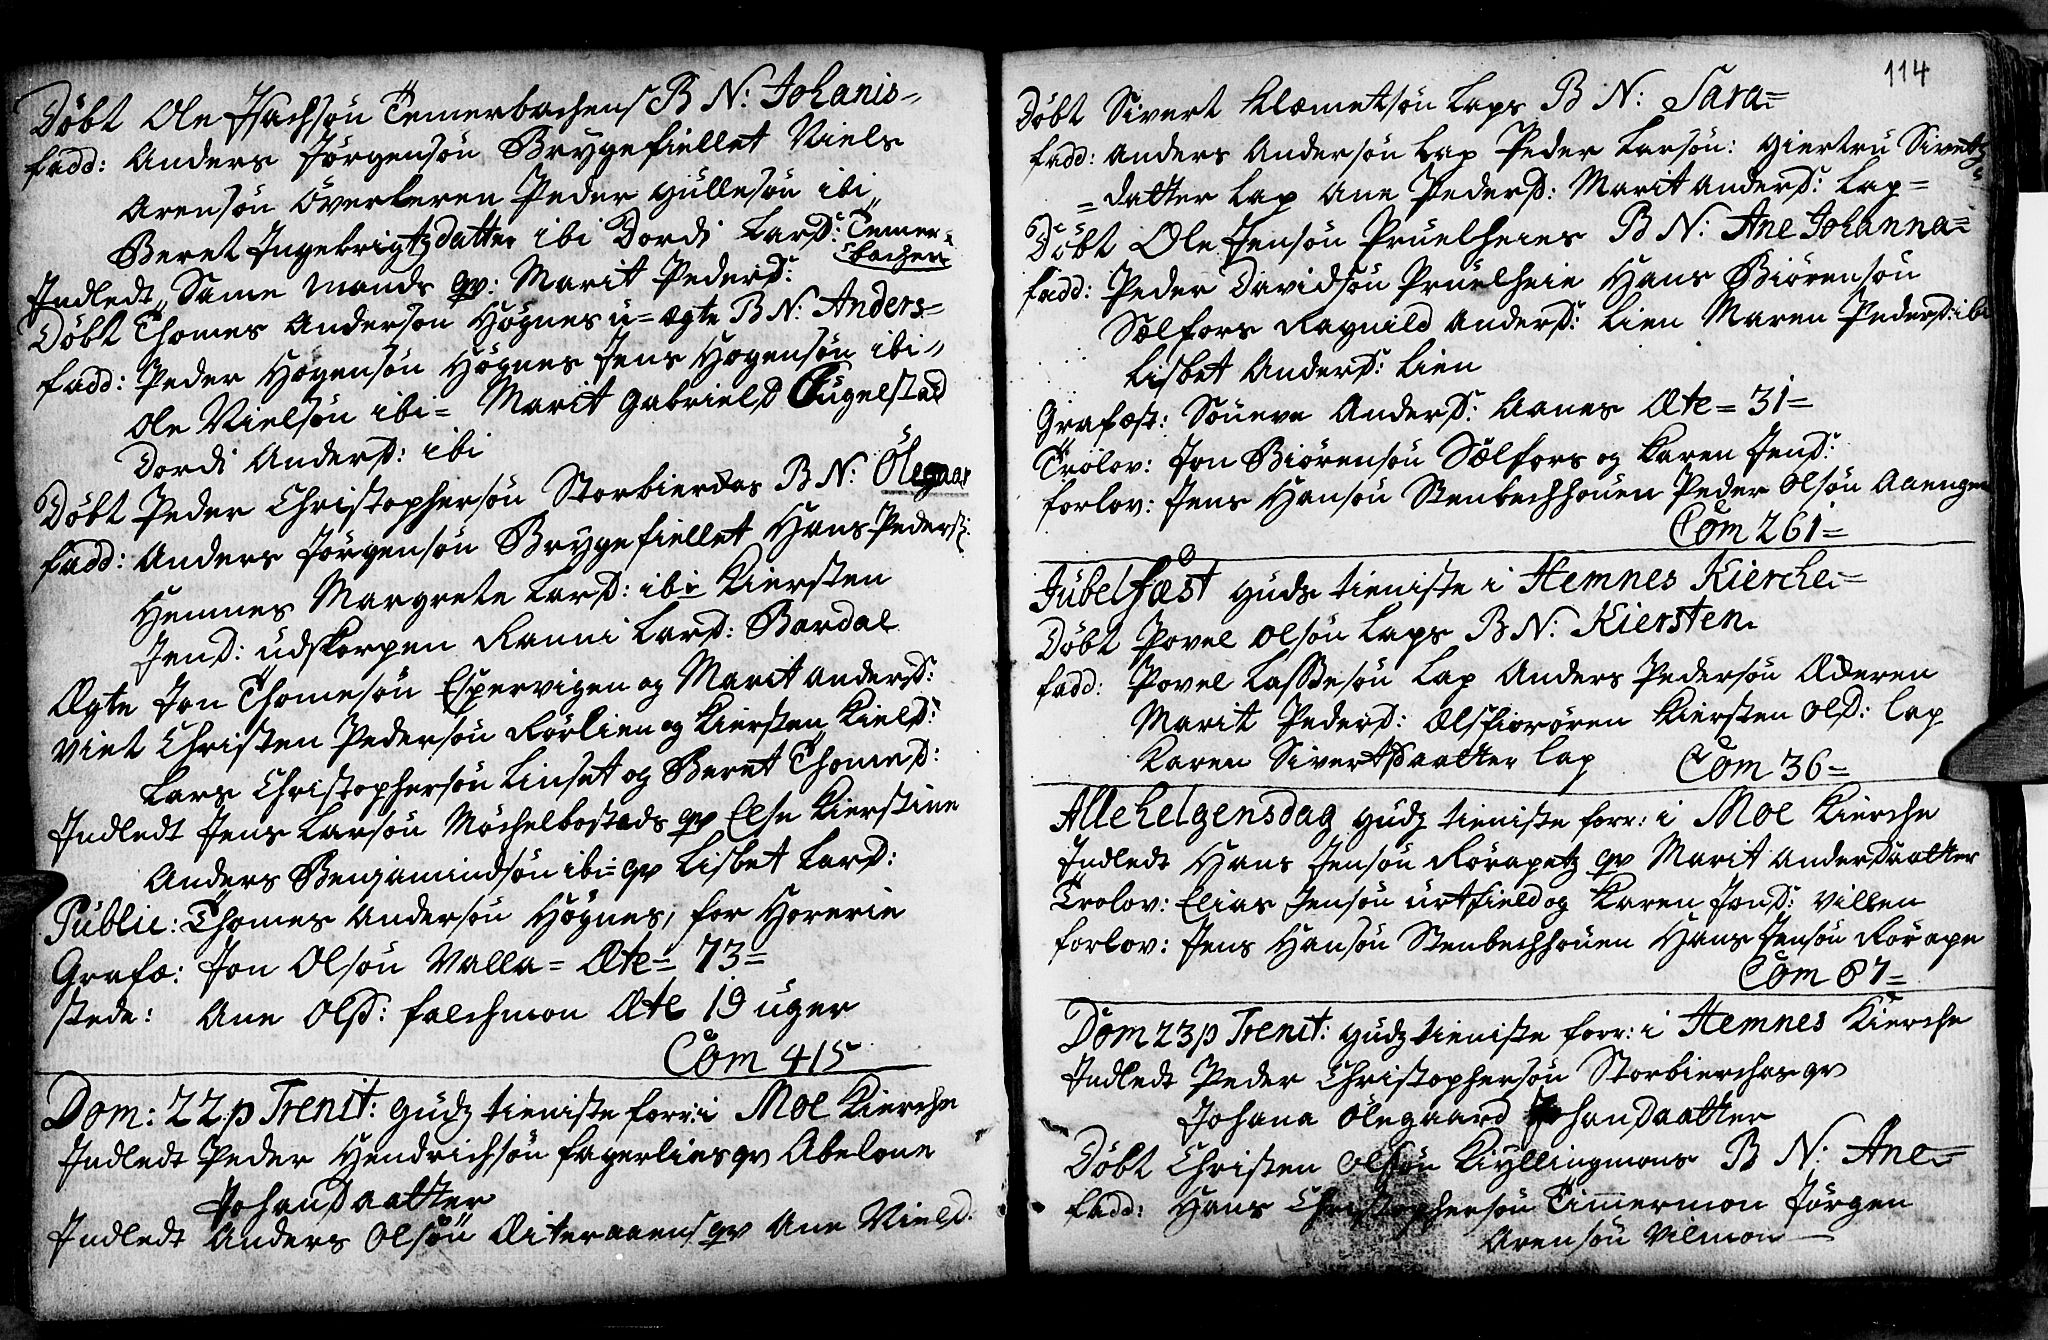 Döbt Ole Isachsön Temerbachens B N: Johanis=
fadd: Anders Jörgensön Brygefiellet Niels
Arensön Överleren Peder Gullesön ibi
Beret Ingebrigtzdatter ibi Dordi Larsd: Temer=
bachen
Indledt Same Mands qv: Marit Pedersd:
Döbt Thomes Anderson Högnes u=ægte B N: Anders=
fadd: Peder Hogensön Högnes Jens Hogensön ibi
Ole Nielsön ibi= Marit Gabrielsd Engelstad
Dordi Andersd: ibi
Döbt Peder Christophersön Storbierchas B N: Ölegaar
fadd: Anders Jörgensön Brygefiellet Hans Peders:
Hemnes Margrete Larsd: ibi Kiersten
Jensd: Udskorpen Ranni Larsd: Bardal
Ægte Jon Thomesön Espervigen og Marit Andersd:
Viet Christen Pedersön Rörlien og Kiersten Kield:
Lars Christophersön Linset og Beret Thomesd:
Indledt Jens Larsön Möchelbostads qv Else Kierstine
Anders Benjamindsön ibi= qv Lisbet Larsd:
Public: Thomes Andersön Högnes, for Horerie
Grafæ: Jon Olsön Valla= Æte= 73=
stede: Ane Olsd: falchmon Æte 19 uger
Com 415
Dom: 22 p Trenit: Gudz tieniste forr: i Moe Kierche
Indledt Peder Hendrichsön fagerlies qv Abelone
Johansdaatter
Indledt Anders Olsön Æiteraaens qv Ane Nielsd:
114
Döbt Sivert Klæmetsön Laps B N: Sara=
fadd: Anders Andersön Lap Peder Larsön: Giertru Sivertz
=datter Lap Ane Pedersd: Marit Andersd: Lap=
Döbt Ole Jensön Pruelheies B N: Ane Johanna=
fadd: Peder Davidsön Pruelheie Hans Biörensön
Sælfors Ragnild Andersd: Lien Maren Pedersd: ibi
Lisbet Andersd: Lien
Grafæst: Söneva Andersd: Aanes Æte= 31=
Trolov: Jon Biörensön Sælfors og Karen Jensd:
forlov: Jens Hansön Stenbechhouen Peder Olsön Aaengen
Com 261=
Jubelfæst Guds tieniste i Hemnes Kierche=
Döbt Povel Olsön Laps B N: Kiersten
fadd: Povel Lassesön Lap Anders Pedersön Æderen
Marit Pedersd: Ælsfiorören Kiersten Olsd: Lap
Karen Sivertsdaatter Lap Com 36=
Allehelgensdag Gudz tieniste forr: i Moe Kierche
Indledt Hans Jensön Rörapetz qv Marit Andersdaatter
Trolov: Elias Jensön Urtfield og Karen Jonsd: Villen
forlov: Jens Hansön Stenbechhouen Hans Jensön Rörape
Com 87=
Dom 23 p Trenit: Gudz tieniste forr: i Hemnes Kierche
Indledt Peder Christophersön Storbierchas qv
Johana Ölegaard Johansdaatter
Döbt Christen Olsön Kiyllingmons B N: Ane=
fadd: Hans Christophersön Timmermon Jörgen
Arensön Vilmon